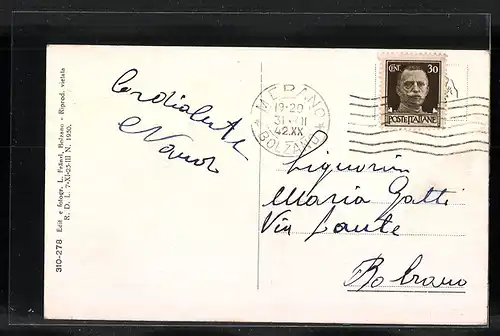 310-278 Edit. e fotogr. L. Fränzl, Bolzano - Riprod. vietata
R. D. L. 7-XI-25-III N. 1950.
Cordialmente
MERANO
19-20
31 VII
42.XX
BOLZANO
CENT. 30
POSTE ITALIANE
Signorina
Maria Gatti
Via Dante
Bolzano